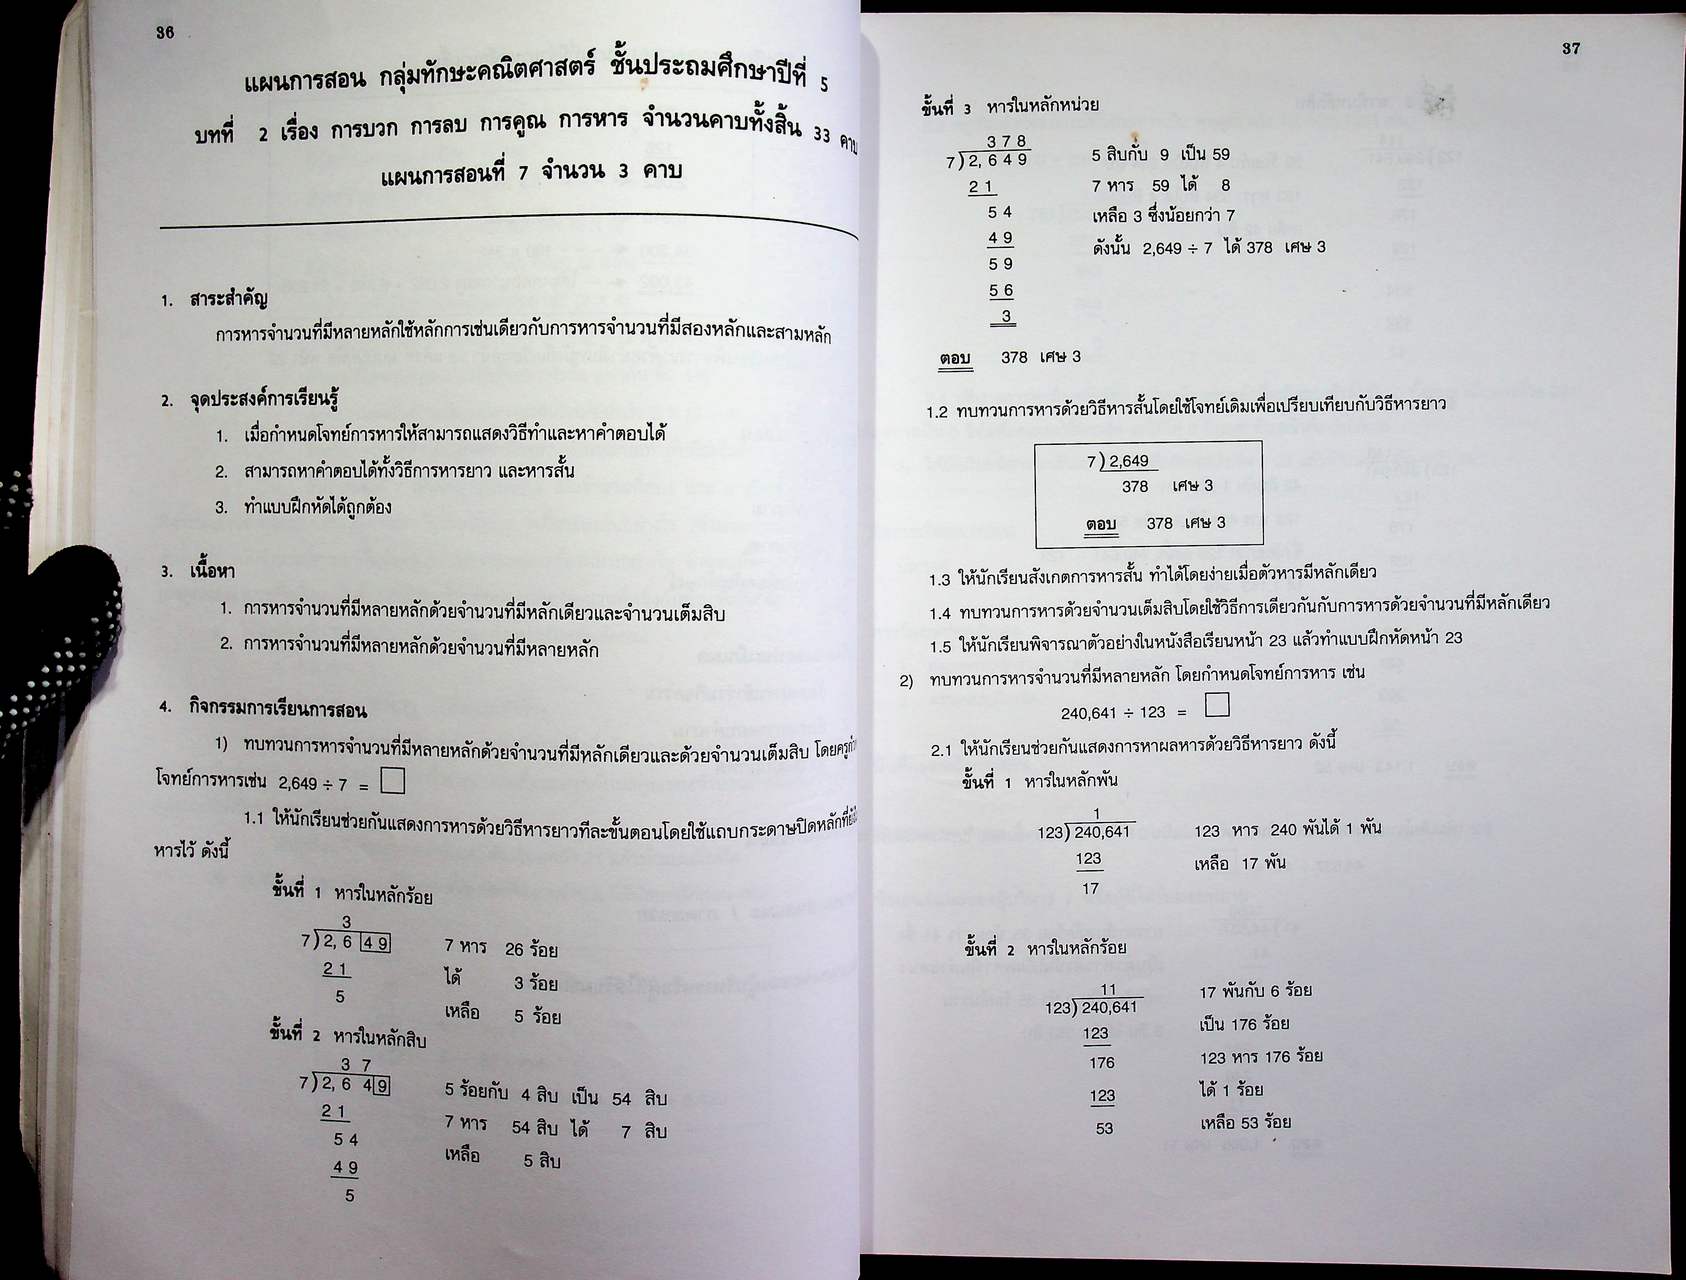 36
แผนการสอน กลุ่มทักษะคณิตศาสตร์ ชั้นประถมศึกษาปีที่ 5
บทที่ 2 เรื่อง การบวก การลบ การคูณ การหาร จำนวนคาบทั้งสิ้น 33 คาบ
แผนการสอนที่ 7 จำนวน 3 คาบ
1. สาระสำคัญ
การหารจำนวนที่มีหลายหลักใช้หลักการเช่นเดียวกับการหารจำนวนที่มีสองหลักและสามหลัก
2. จุดประสงค์การเรียนรู้
1. เมื่อกำหนดโจทย์การหารให้สามารถแสดงวิธีทำและหาคำตอบได้
2. สามารถหาคำตอบได้ทั้งวิธีการหารยาว และหารสั้น
3. ทำแบบฝึกหัดได้ถูกต้อง
3. เนื้อหา
1. การหารจำนวนที่มีหลายหลักด้วยจำนวนที่มีหลักเดียวและจำนวนเต็มสิบ
2. การหารจำนวนที่มีหลายหลักด้วยจำนวนที่มีหลายหลัก
4. กิจกรรมการเรียนการสอน
1) ทบทวนการหารจำนวนที่มีหลายหลักด้วยจำนวนที่มีหลักเดียวและด้วยจำนวนเต็มสิบ
โจทย์การหารเช่น 2,649 ÷ 7 = □
1.1 ให้นักเรียนช่วยกันแสดงการหารด้วยวิธีหารยาวทีละขั้นตอนโดยใช้แถบกระดาษปิดหลัก
หารไว้ ดังนี้
ขั้นที่ 1 หารในหลักร้อย
3
7)2, 6 4 9 7 หาร 26 ร้อย
2 1 ได้ 3 ร้อย
5 เหลือ 5 ร้อย
ขั้นที่ 2 หารในหลักสิบ
3 7
7)2, 6 4 9 5 ร้อยกับ 4 สิบ เป็น 54 สิบ
2 1 7 หาร 54 สิบ ได้ 7 สิบ
5 4 เหลือ 5 สิบ
4 9
5
37
ขั้นที่ 3 หารในหลักหน่วย
3 7 8
7)2, 6 4 9 5 สิบกับ 9 เป็น 59
2 1 7 หาร 59 ได้ 8
5 4 เหลือ 3 ซึ่งน้อยกว่า 7
4 9 ดังนั้น 2,649 ÷ 7 ได้ 378 เศษ 3
5 9
5 6
3
ตอบ 378 เศษ 3
1.2 ทบทวนการหารด้วยวิธีหารสั้นโดยใช้โจทย์เดิมเพื่อเปรียบเทียบกับวิธีหารยาว
7)2,649
378 เศษ 3
ตอบ 378 เศษ 3
1.3 ให้นักเรียนสังเกตการหารสั้น ทำได้โดยง่ายเมื่อตัวหารมีหลักเดียว
1.4 ทบทวนการหารด้วยจำนวนเต็มสิบโดยใช้วิธีการเดียวกันกับการหารด้วยจำนวนที่มีหลักเดียว
1.5 ให้นักเรียนพิจารณาตัวอย่างในหนังสือเรียนหน้า 23 แล้วทำแบบฝึกหัดหน้า 23
2) ทบทวนการหารจำนวนที่มีหลายหลัก โดยกำหนดโจทย์การหาร เช่น
240,641 ÷ 123 = □
2.1 ให้นักเรียนช่วยกันแสดงการหาผลหารด้วยวิธีหารยาว ดังนี้
ขั้นที่ 1 หารในหลักพัน
1
123)240,641 123 หาร 240 พันได้ 1 พัน
123 เหลือ 17 พัน
17
ขั้นที่ 2 หารในหลักร้อย
11 17 พันกับ 6 ร้อย
123)240,641 เป็น 176 ร้อย
123
176 123 หาร 176 ร้อย
123 ได้ 1 ร้อย
53 เหลือ 53 ร้อย